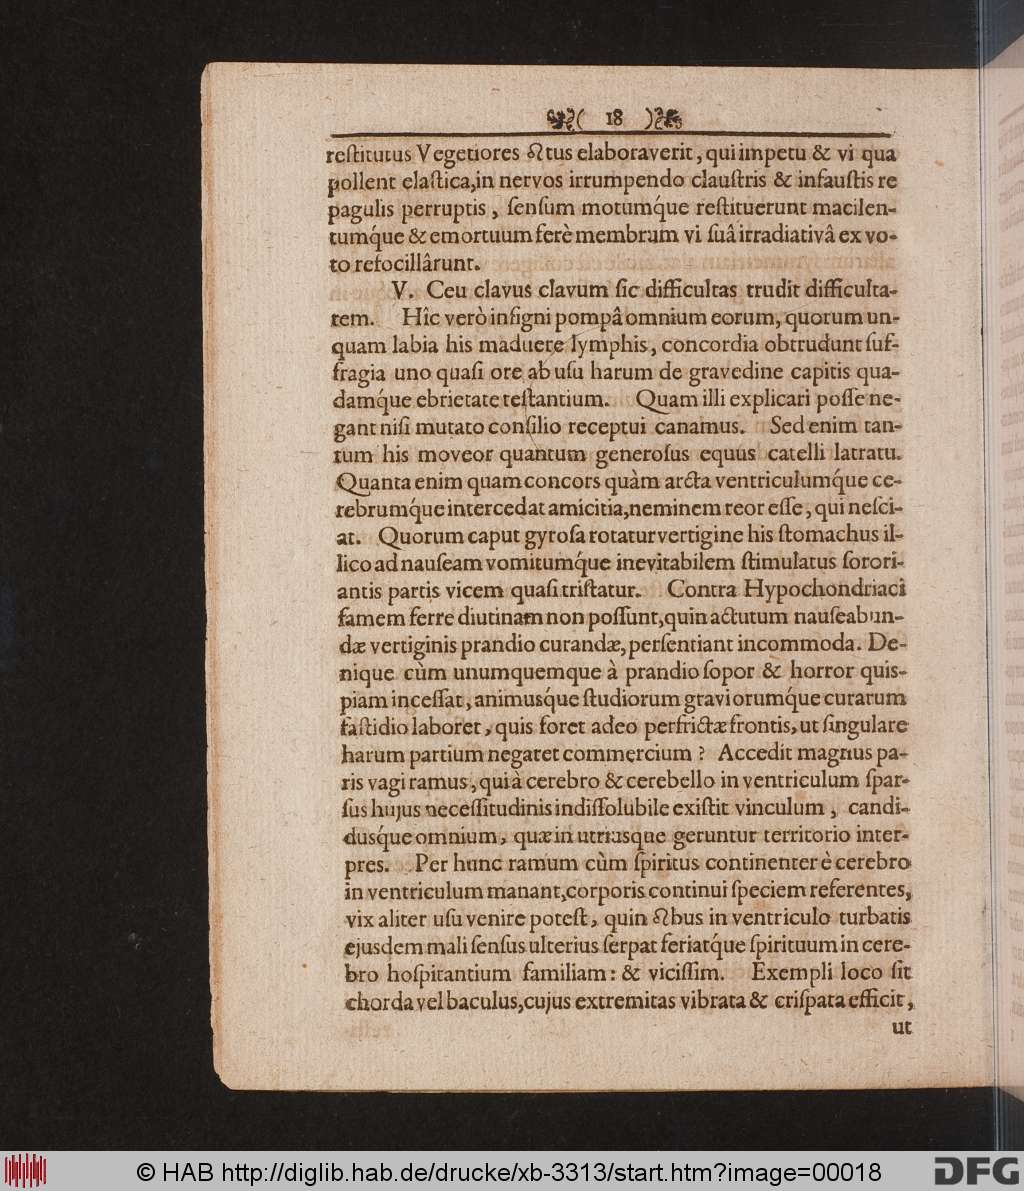 ( 18 )
reſtitutus Vegetiores ☊tus elaboraverit, qui impetu & vi qua
pollent elaſtica, in nervos irrumpendo clauſtris & infauſtis re
pagulis perruptis, ſenſum motumq́ue reſtituerunt macilen-
tumq́ue & emortuum ferè membrum vi ſuâ irradiativâ ex vo-
to refocillârunt.
V. Ceu clavus clavum ſic difficultas trudit difficulta-
tem. Hîc verò inſigni pompâ omnium eorum, quorum un-
quam labia his maduere lymphis, concordia obtrudunt ſuf-
fragia uno quaſi ore ab uſu harum de gravedine capitis qua-
damq́ue ebrietate teſtantium. Quam illi explicari poſſe ne-
gant niſi mutato conſilio receptui canamus. Sed enim tan-
tum his moveor quantum generoſus equus catelli latratu.
Quanta enim quam concors quàm arcta ventriculumq́ue ce-
rebrumq́ue intercedat amicitia, neminem reor eſſe, qui neſci-
at. Quorum caput gyroſa rotatur vertigine his ſtomachus il-
lico ad nauſeam vomitumq́ue inevitabilem ſtimulatus ſorori-
antis partis vicem quaſi triſtatur. Contra Hypochondriaci
famem ferre diutinam non poſſunt, quin actutum nauſeabun-
dæ vertiginis prandio curandæ, perſentiant incommoda. De-
nique cùm unumquemque à prandio ſopor & horror quis-
piam inceſſat, animusq́ue ſtudiorum graviorumq́ue curarum
faſtidio laboret, quis foret adeo perfrictæ frontis, ut ſingulare
harum partium negaret commercium? Accedit magnus pa-
ris vagi ramus, qui à cerebro & cerebello in ventriculum ſpar-
ſus hujus neceſſitudinis indiſſolubile exiſtit vinculum, candi-
dusq́ue omnium, quæ in utriusque geruntur territorio inter-
pres. Per hunc ramum cùm ſpiritus continenter è cerebro
in ventriculum manant, corporis continui ſpeciem referentes,
vix aliter uſu venire poteſt, quin ☊bus in ventriculo turbatis
ejusdem mali ſenſus ulterius ſerpat feriatq́ue ſpirituum in cere-
bro hoſpitantium familiam: & viciſſim. Exempli loco ſit
chorda vel baculus, cujus extremitas vibrata & criſpata efficit,
ut
© HAB http://diglib.hab.de/drucke/xb-3313/start.htm?image=00018
DFG